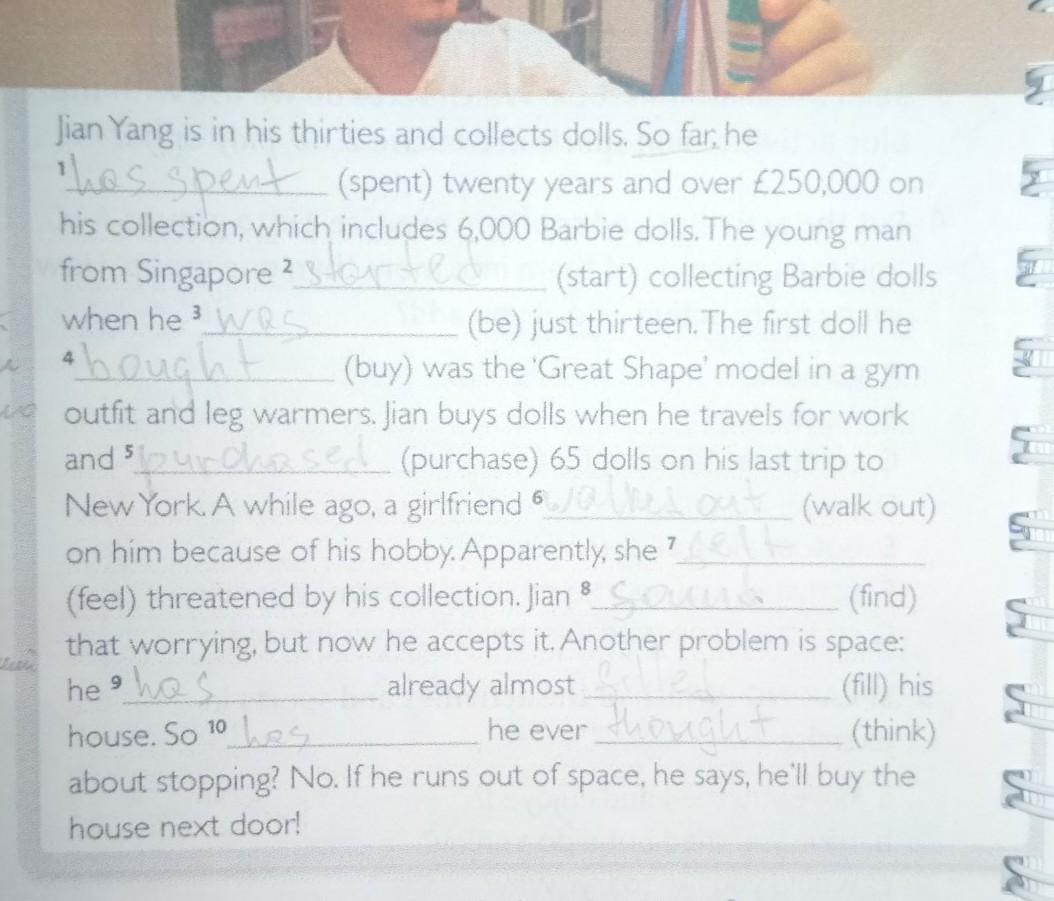 Jian Yang is in his thirties and collects dolls. So far, he
1 has spent (spent) twenty years and over £250,000 on
his collection, which includes 6,000 Barbie dolls. The young man
from Singapore 2 started (start) collecting Barbie dolls
when he 3 was (be) just thirteen. The first doll he
4 bought (buy) was the ‘Great Shape’ model in a gym
outfit and leg warmers. Jian buys dolls when he travels for work
and 5 purchased (purchase) 65 dolls on his last trip to
New York. A while ago, a girlfriend 6 out (walk out)
on him because of his hobby. Apparently, she 7 felt
(feel) threatened by his collection. Jian 8 (find)
that worrying, but now he accepts it. Another problem is space:
he 9 has already almost filled (fill) his
house. So 10 has he ever thought (think)
about stopping? No. If he runs out of space, he says, he'll buy the
house next door!